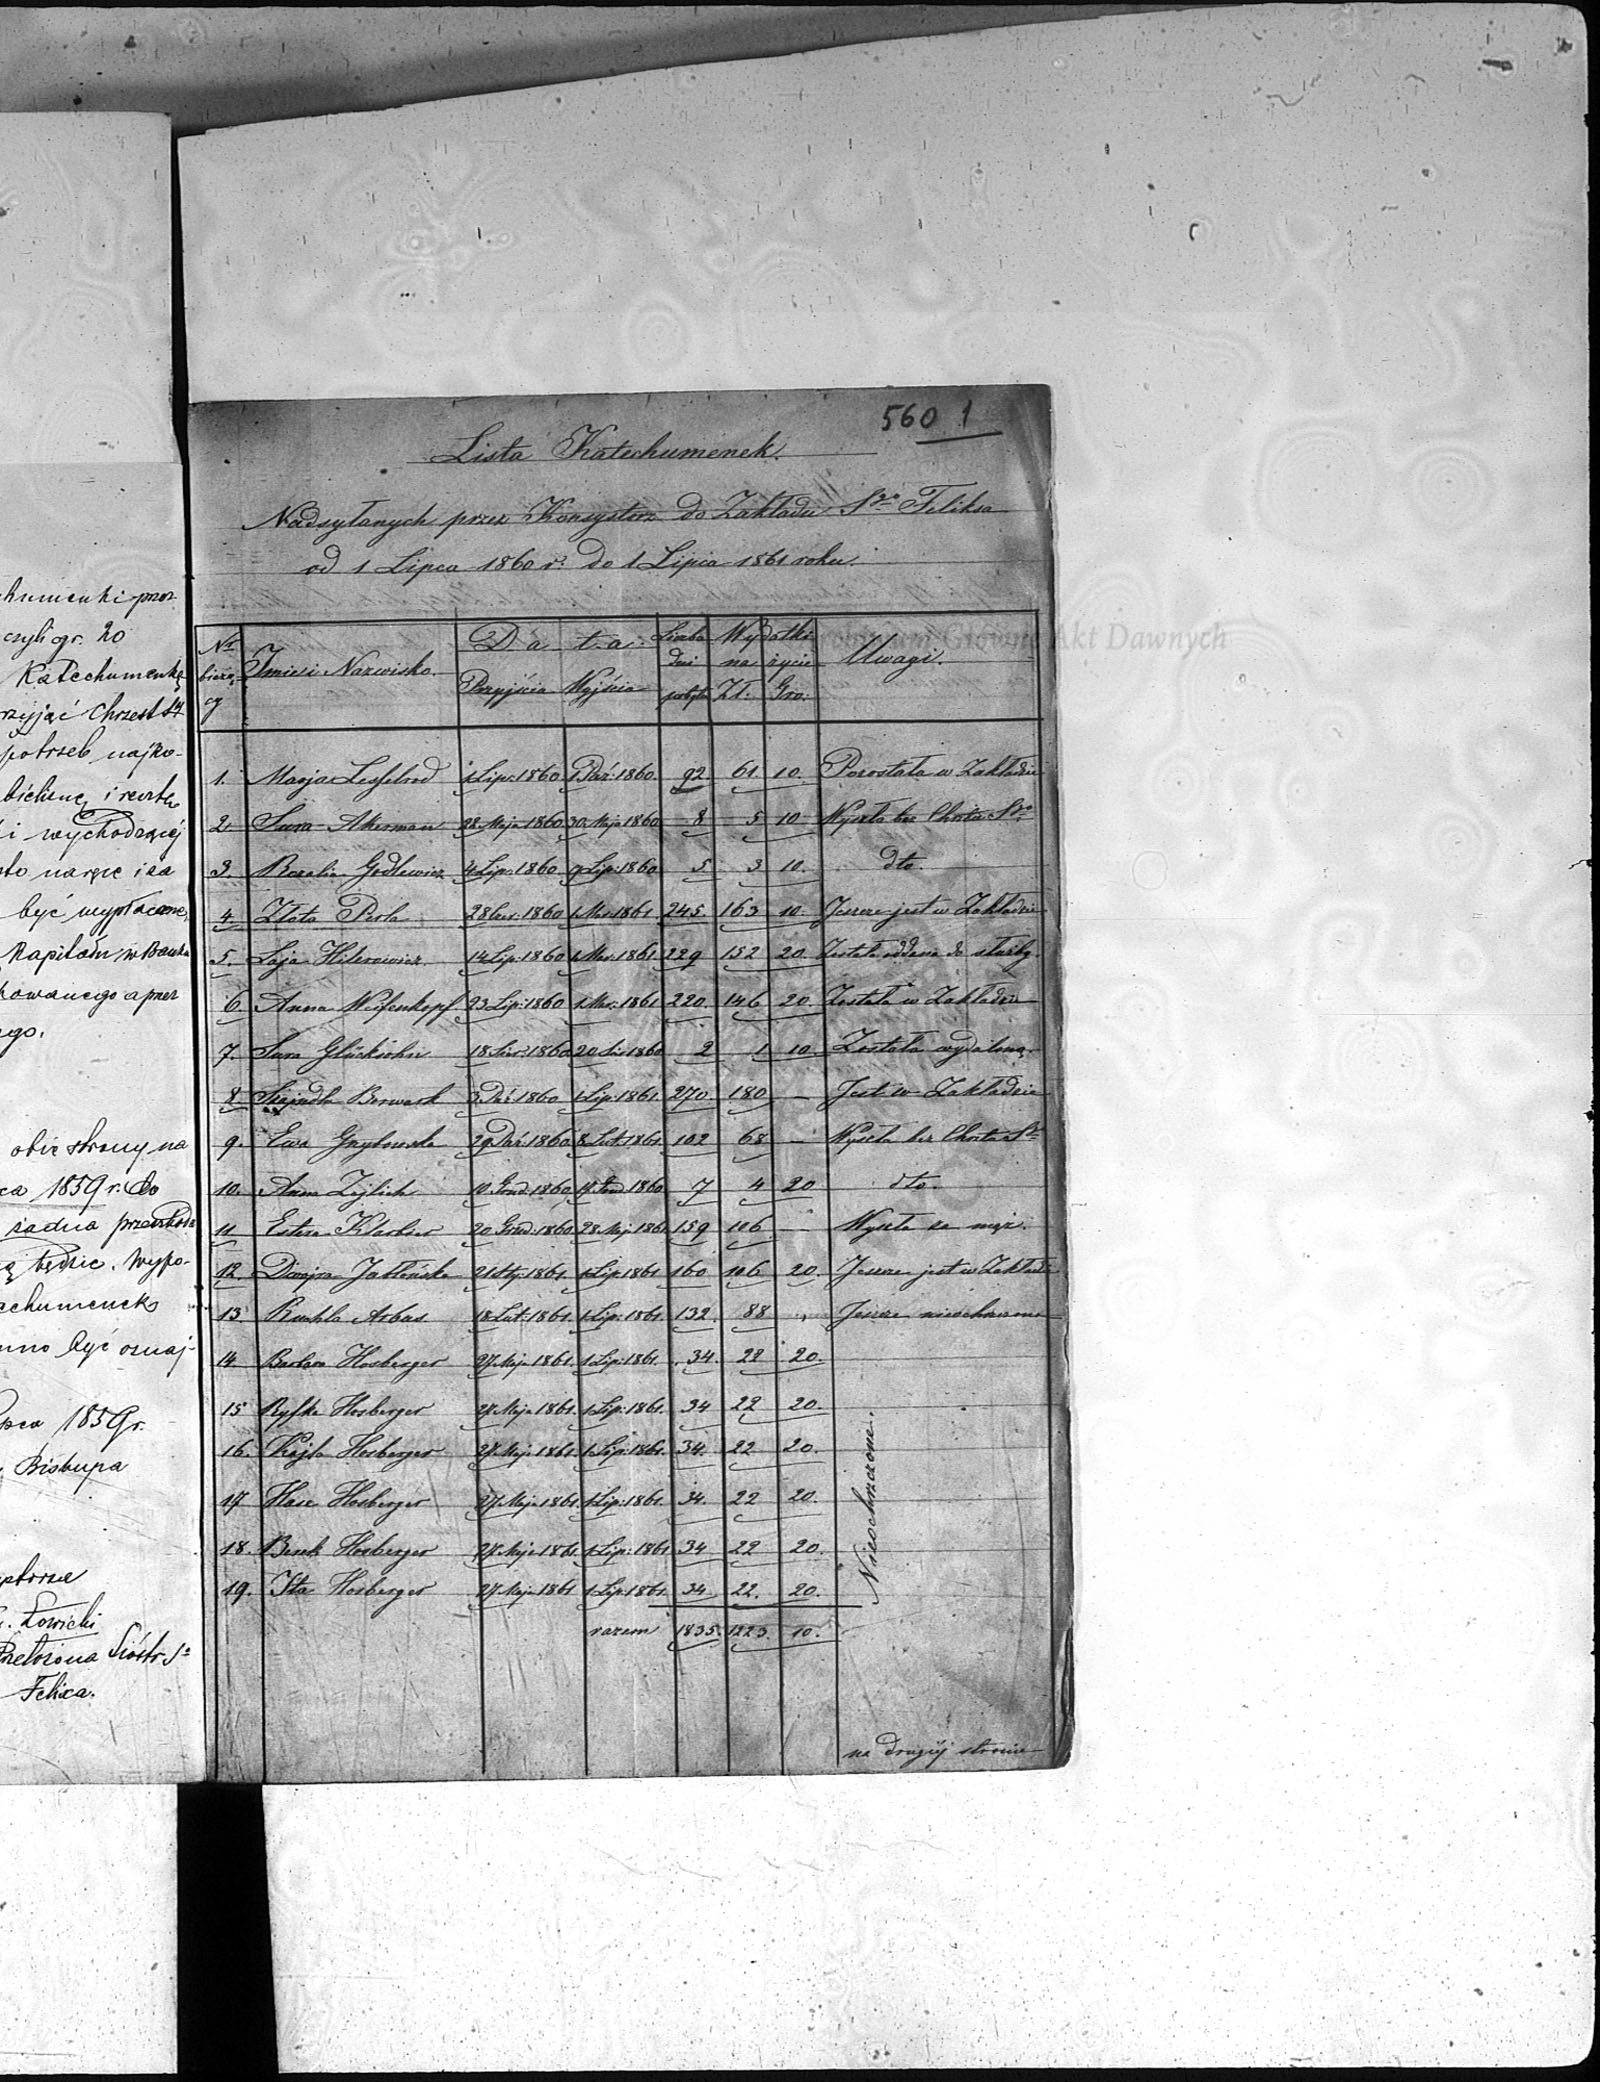 humenki prze
czyli gr. 20
Katechumenkę
przyjąć Chrzest Sty
potrzeb najko-
bieliznę i
i wychodzącej
to narzę i za
być wypłacone
Kapitału w Banku
kowanego a przez
ego.
obie strony na
ca 1859 r. do
żadna przeszkoda
będzie. Wypo-
chumenek
no być oznaj-
Lipca 1859 r.
Biskupa
. Łowicki
Przełożona Sióstr S.
Felixa.
560 1
Lista Katechumenek.
Nadsyłanych przez Konsystorz do Zakładu Sgo Feliksa
od 1 Lipca 1860 r. do 1 Lipca 1861 roku.
Archiwum Główne Akt Dawnych
Nr bieżący Imie i Nazwisko. Data: Przyjścia Wyjścia Liczba dni pobytu Wydatki na życie Zł. Gro. Uwagi.
1. Marja Lesselrod 1 Lip: 1860 1 Paź: 1860. 92. 61. 10. Pozostała w Zakładzie
2. Sura Akerman 28. Maja 1860 30. Maja 1860 8 5 10 Wyszła bez Chrztu Sgo
3. Rozalia Godlewicz 4 Lip: 1860 9 Lip: 1860 5. 3 10. dto.
4. Złata Perla 28 Czer: 1860 1 Mar: 1861 245. 163 10. Jeszcze jest w Zakładzie
5. Laja Hilerowicz 14 Lip: 1860 1 Mar: 1861 229 152 20. Została oddana do służby.
6. Anna Weifenkopf 23 Lip: 1860 1 Mar: 1861 220. 146 20. Została w Zakładzie
7. Sura Glücksohn 18 Sier: 1860 20 Sier 1860 2 1 10. Została wydaloną.
8. Szejndla Berwark 3. Paź: 1860 1 Lip: 1861. 270 180 — Jest w Zakładzie
9. Ewa Grybowska 29 Paź: 1860 8 Lut: 1861. 102 68 — Wyszła bez Chrztu S.
10. Anna Zejlich 10. Grud: 1860 17 Grud 1860 7 4 20 dto.
11 Estera Klarber 20 Grud: 1860 28. Maj. 1861 159 106 — Wyszła za mąż.
12. Dwojra Jabłońska 21 Sty: 1861. 1 Lip: 1861 160 106 20. Jeszcze jest w Zakładz
13. Ruchla Arbus 18 Lut: 1861. 1 Lip: 1861. 132. 88 „ Jeszcze nieochrzczona
14 Barbara Hosberger 27 Maja 1861. 1 Lip: 1861. 34. 22 20.
15 Ryfka Hosberger 27 Maja 1861. 1 Lip: 1861. 34 22 20.
16. Fajla Hosberger 27 Maja 1861. 1 Lip: 1861. 34. 22 20.
17 Hase Hosberger 27. Maja 1861. 1 Lip: 1861. 34. 22 20.
18. Berek Hosberger 27 Maja 1861. 1 Lip: 1861 34 22 20.
19. Ita Hosberger 27 Maja 1861 1 Lip: 1861. 34 22. 20.
Nieochrzczone.
razem 1835. 1223. 10.
na drugiéj stronie